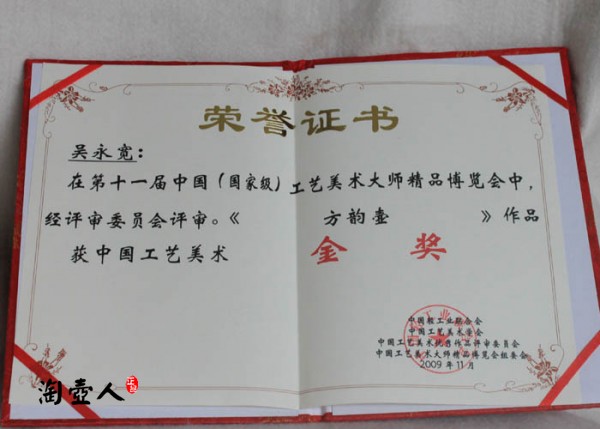 荣誉证书
吴永宽：
在第十一届中国（国家级）工艺美术大师精品博览会中，
经评审委员会评审。《 方韵壶 》作品
获中国工艺美术 金 奖
中国轻工业联合会
中国工艺美术学会
中国工艺美术优秀作品评审委员会
中国工艺美术大师精品博览会组委会
2009年11月
淘壶人